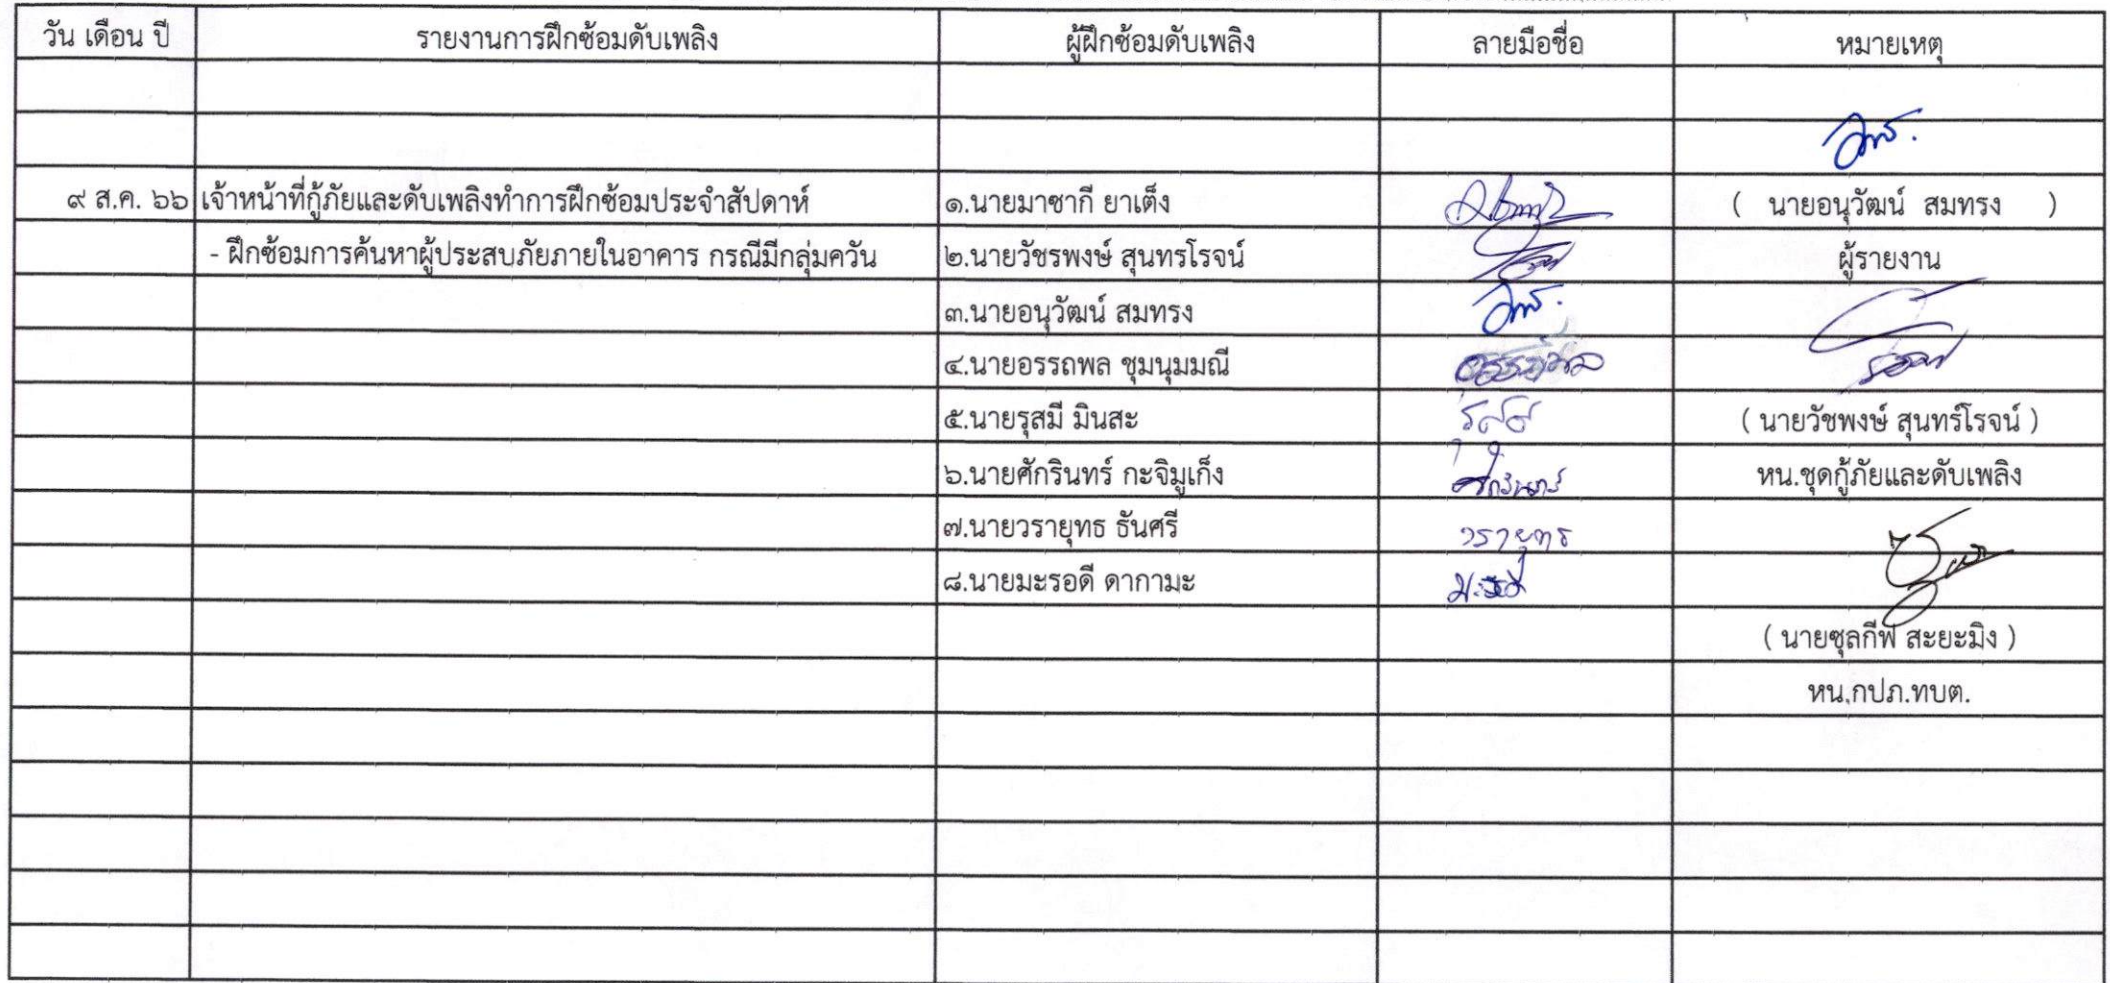 วัน เดือน ปี รายงานการฝึกซ้อมดับเพลิง ผู้ฝึกซ้อมดับเพลิง ลายมือชื่อ หมายเหตุ
๙ ส.ค. ๖๖ เจ้าหน้าที่กู้ภัยและดับเพลิงทำการฝึกซ้อมประจำสัปดาห์ ๑.นายมาซากี ยาเต็ง ( นายอนุวัฒน์ สมทรง )
- ฝึกซ้อมการค้นหาผู้ประสบภัยภายในอาคาร กรณีมีกลุ่มควัน ๒.นายวัชรพงษ์ สุนทรโรจน์ ผู้รายงาน
๓.นายอนุวัฒน์ สมทรง
๔.นายอรรถพล ชุมนุมมณี
๕.นายรุสมี มินสะ ( นายวัชพงษ์ สุนทร์โรจน์ )
๖.นายศักรินทร์ กะจิมูเก็ง ศักรินทร์ หน.ชุดกู้ภัยและดับเพลิง
๗.นายวรายุทธ ธันศรี วรายุทธ
๘.นายมะรอดี ดากามะ มะรอดี
( นายซุลกีฟ สะยะมิง )
หน.กปภ.ทบต.